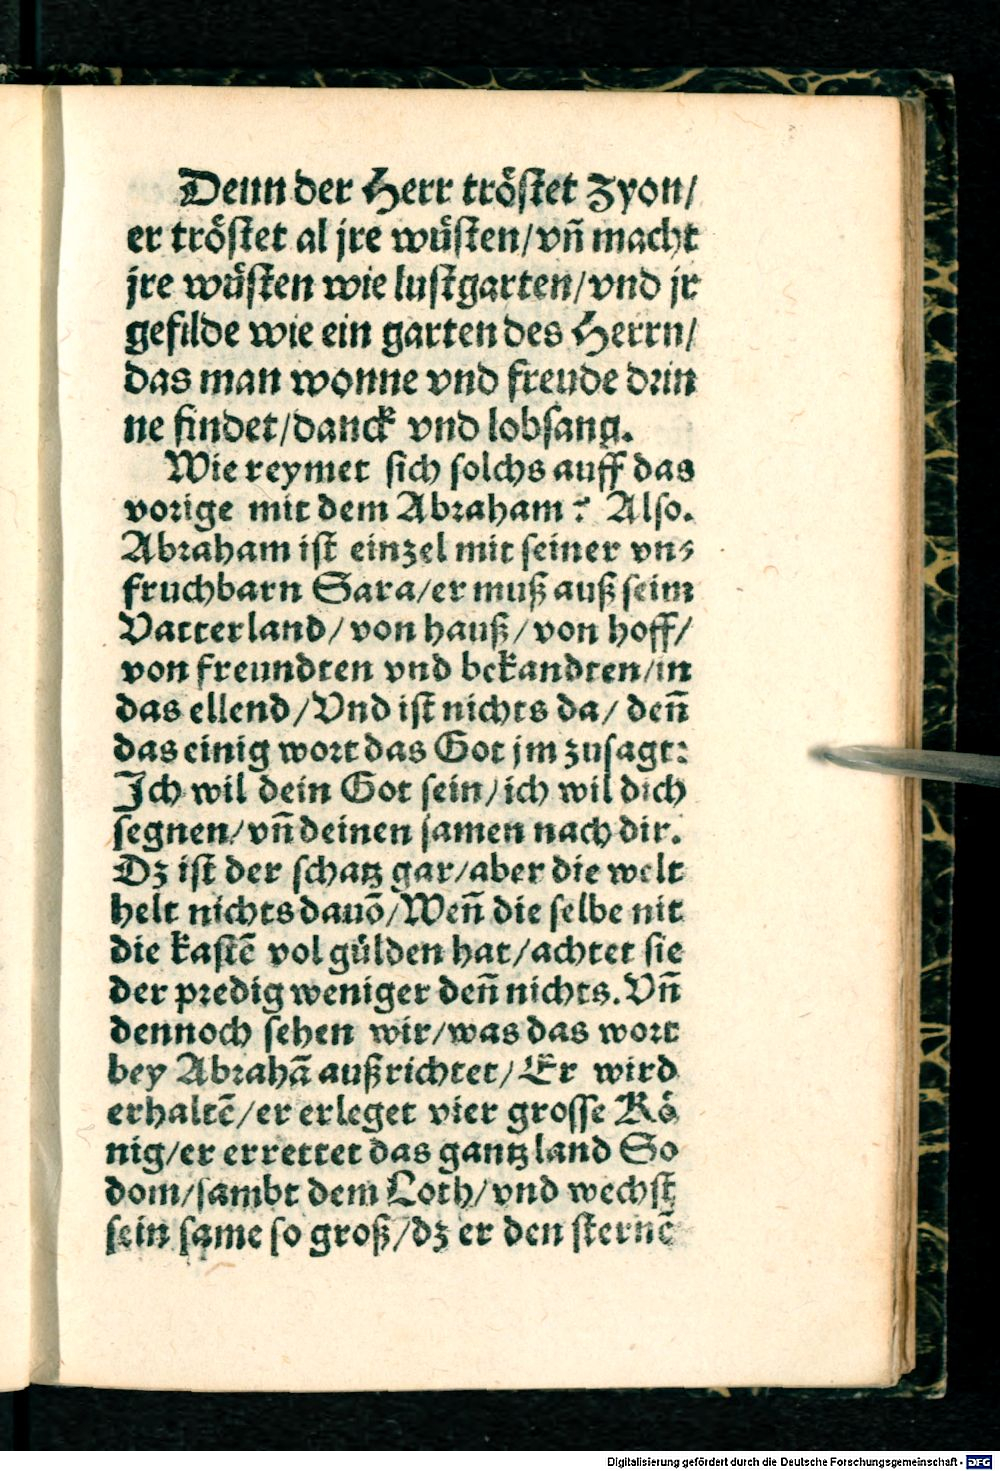 Denn der Herr tröstet Zyon/
er tröstet al jre wüsten/vñ macht
jre wüsten wie lustgarten/vnd jr
gefilde wie ein garten des Herrn/
das man wonne vnd freude drin
ne findet/danck vnd lobsang.
Wie reymet sich solchs auff das
vorige mit dem Abraham? Also.
Abraham ist einzel mit seiner vn⸗
fruchbarn Sara/er muß auß seim
Vatterland/von hauß/von hoff/
von freundten vnd bekandten/in
das ellend/Vnd ist nichts da/denñ
das einig wort das Got jm zusagt:
Ich wil dein Got sein/ich wil dich
segnen/vñ deinen samen nach dir.
Dz ist der schatz gar/aber die welt
helt nichts dauõ/Weñ die selbe nit
die kastẽ vol gülden hat/achtet sie
der predig weniger deñ nichts. Vñ
dennoch sehen wir/was das wort
bey Abrahã außrichtet/Er wird
erhaltẽ/er erleget vier grosse Kö
nig/er errettet das gantz land So
dom/sambt dem Loth/vnd wechst
sein same so groß/dz er den sternẽ
Digitalisierung gefördert durch die Deutsche Forschungsgemeinschaft - DFG